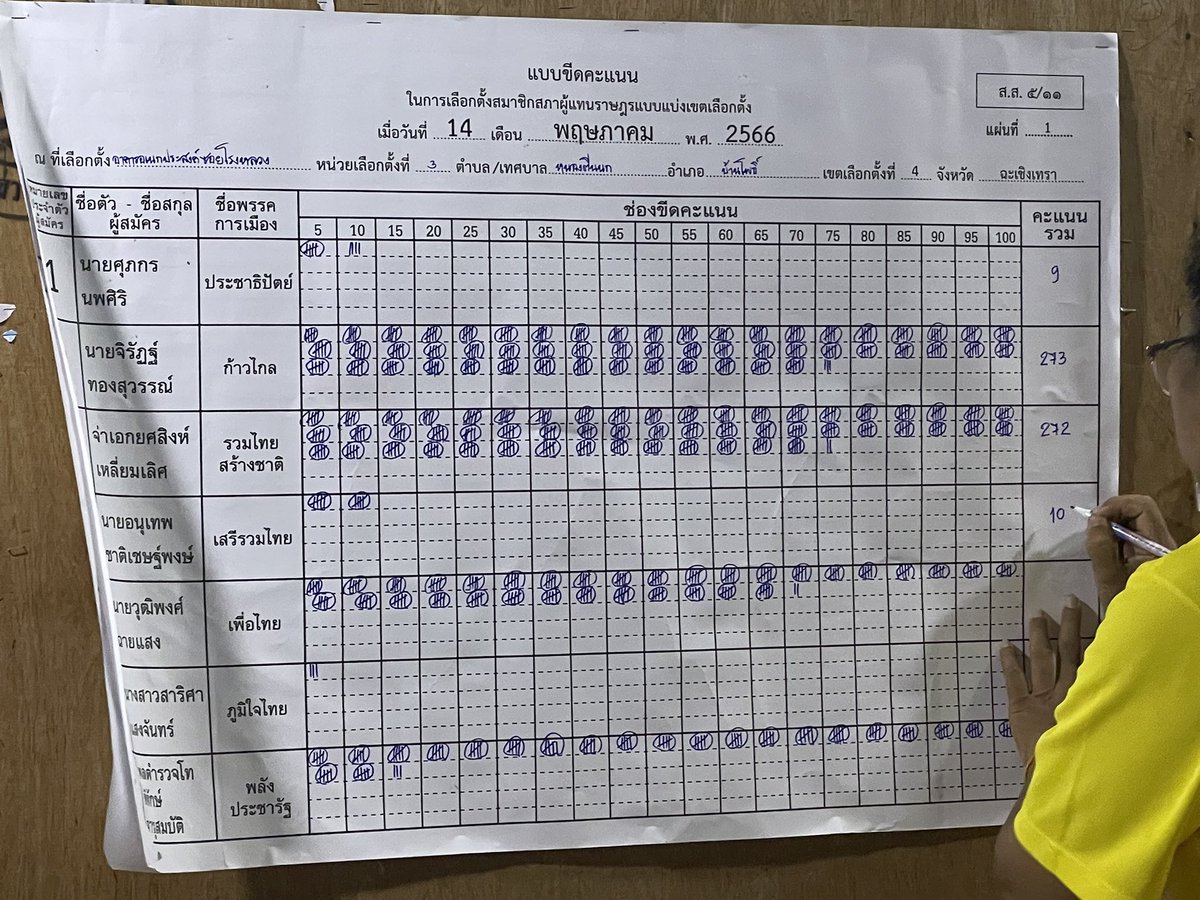 แบบขีดคะแนน
ส.ส. ๕/๑๑
ในการเลือกตั้งสมาชิกสภาผู้แทนราษฎรแบบแบ่งเขตเลือกตั้ง
เมื่อวันที่ 14 เดือน พฤษภาคม พ.ศ. 2566
แผ่นที่ 1
ณ ที่เลือกตั้ง อาคารอเนกประสงค์ซอยโรงหลวง หน่วยเลือกตั้งที่ 3 ตำบล/เทศบาล หนองตีนนก อำเภอ บ้านโพธิ์ เขตเลือกตั้งที่ 4 จังหวัด ฉะเชิงเทรา
หมายเลขประจำตัวผู้สมัคร ชื่อตัว - ชื่อสกุล ผู้สมัคร ชื่อพรรคการเมือง ช่องขีดคะแนน คะแนนรวม
5 10 15 20 25 30 35 40 45 50 55 60 65 70 75 80 85 90 95 100
1 นายศุภกร นพศิริ ประชาธิปัตย์ 9
นายจิรัฏฐ์ ทองสุวรรณ์ ก้าวไกล 273
จ่าเอกยศสิงห์ เหลี่ยมเลิศ รวมไทยสร้างชาติ 272
นายอนุเทพ ชาติเชษฐ์พงษ์ เสรีรวมไทย 10
นายวุฒิพงศ์ ฉายแสง เพื่อไทย
นางสาวสาริศา แสงจันทร์ ภูมิใจไทย
พลตำรวจโท พิทักษ์ จารุสมบัติ พลังประชารัฐ